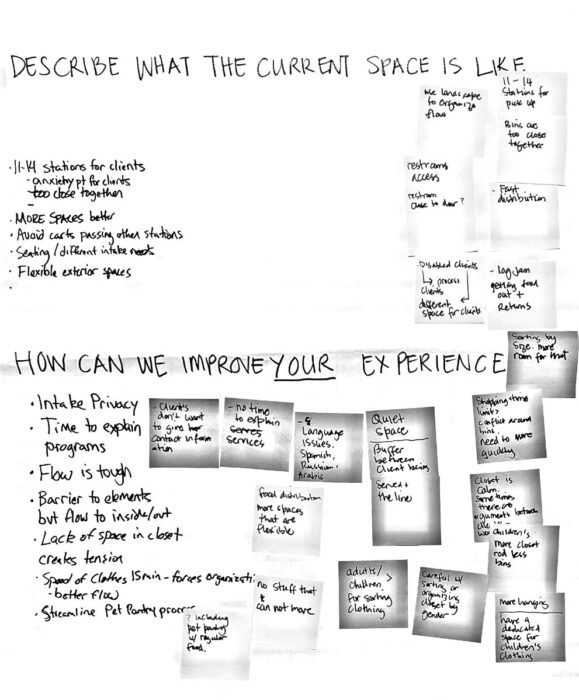 DESCRIBE WHAT THE CURRENT SPACE IS LIKE.
use landscape
to organize
flow
11-14
Stations for
pick up
Bins are
too close
together
· 11-14 stations for clients
- anxiety pt for clients
too close together
-
· MORE SPACES better
· Avoid carts passing other stations
· Seating / different intake needs
· Flexible exterior spaces
·
restrooms
access
restroom
close to door?
- Fast
distribution
· Disabled clients
↳ process
clients
different
space for clients
- Log jam
getting food
out +
Returns
HOW CAN WE IMPROVE YOUR EXPERIENCE
Sorting by
size. more
room for that
· Intake Privacy
· Time to explain
programs
· Flow is tough
· Barrier to elements
but flow to inside/out
· Lack of space in closet
creates tension
· Speed of clothes 15min - forces organizati
- better flow
· Streamline Pet Pantry proces
- Clients
don't want
to give
contact inform
ation
- no time
to explain
serves
services
-
Language
issues.
Spanish,
Russian,
Arabic
Quiet
Space
Buffer
between
Client being
Served +
the line
Shopping time
limits
conflict around
bins.
need to
quickly
food distribution
more spaces
that are
flexible
Closet is
calm.
Sometimes
there are
arguments
children's
more closet
rod less
bins
no stuff that
can not move
adults/
children >
for sorting
clothing
Careful w/
sorting or
organizing
closet by
gender
more hanging
have a
dedicated
space for
children's
Clothing
? including
pet pantry
w/ regular
food.